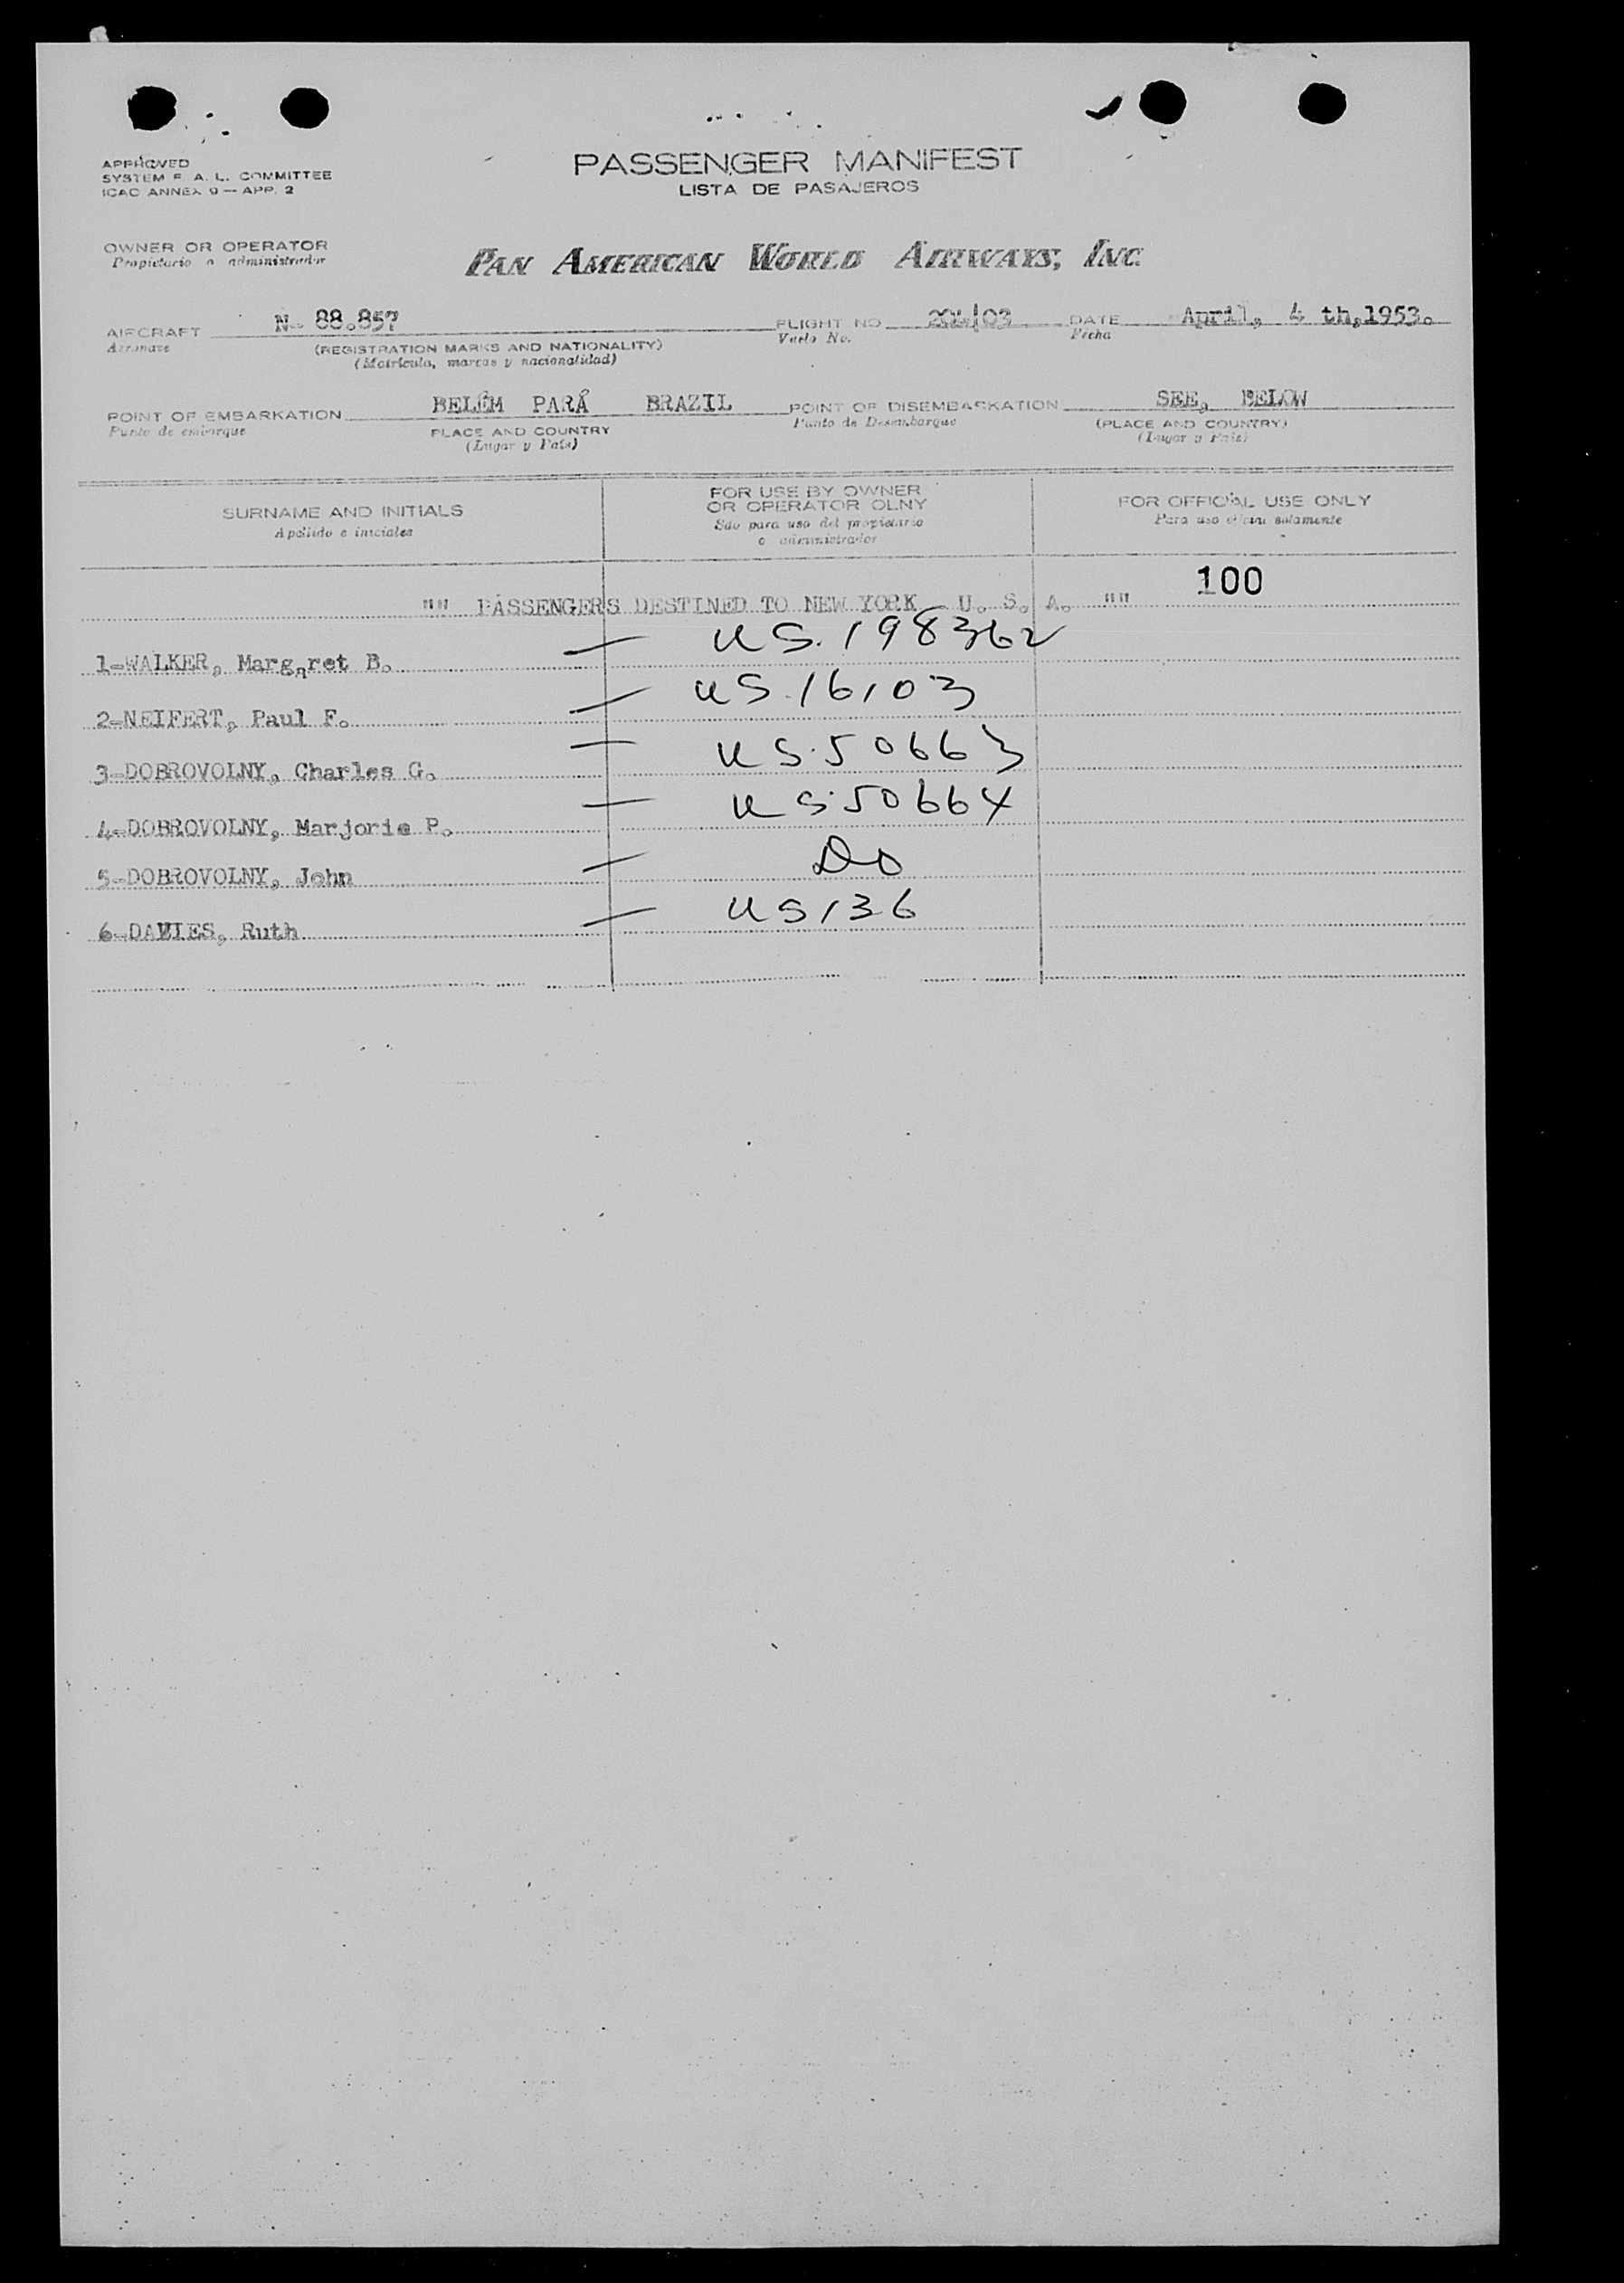 APPROVED
SYSTEM F. A. L. COMMITTEE
ICAO ANNEX 9 — APP. 2
PASSENGER MANIFEST
LISTA DE PASAJEROS
OWNER OR OPERATOR
Propietario o administrador
PAN AMERICAN WORLD AIRWAYS, INC.
AIRCRAFT N- 88.857 FLIGHT NO 203 DATE April, 4 th,1953.
Aeronave (REGISTRATION MARKS AND NATIONALITY) Vuelo No. Fecha
(Matrícula, marcas y nacionalidad)
POINT OF EMBARKATION BELÉM PARÁ BRAZIL POINT OF DISEMBARKATION SEE, BELOW
Punto de embarque PLACE AND COUNTRY Punto de Desembarque (PLACE AND COUNTRY)
(Lugar y País) (Lugar y País)
SURNAME AND INITIALS
Apellido e iniciales
FOR USE BY OWNER
OR OPERATOR OLNY
Sólo para uso del propietario
o administrador
FOR OFFICIAL USE ONLY
Para uso oficial solamente
100
"" PASSENGERS DESTINED TO NEW YORK - U. S. A. ""
1-WALKER, Margaret B. — US.198362
2-NEIFERT, Paul F. — US.16103
3-DOBROVOLNY, Charles G. — US.50663
4-DOBROVOLNY, Marjorie P. — US.50664
5-DOBROVOLNY, John — Do
6-DAVIES, Ruth — US136